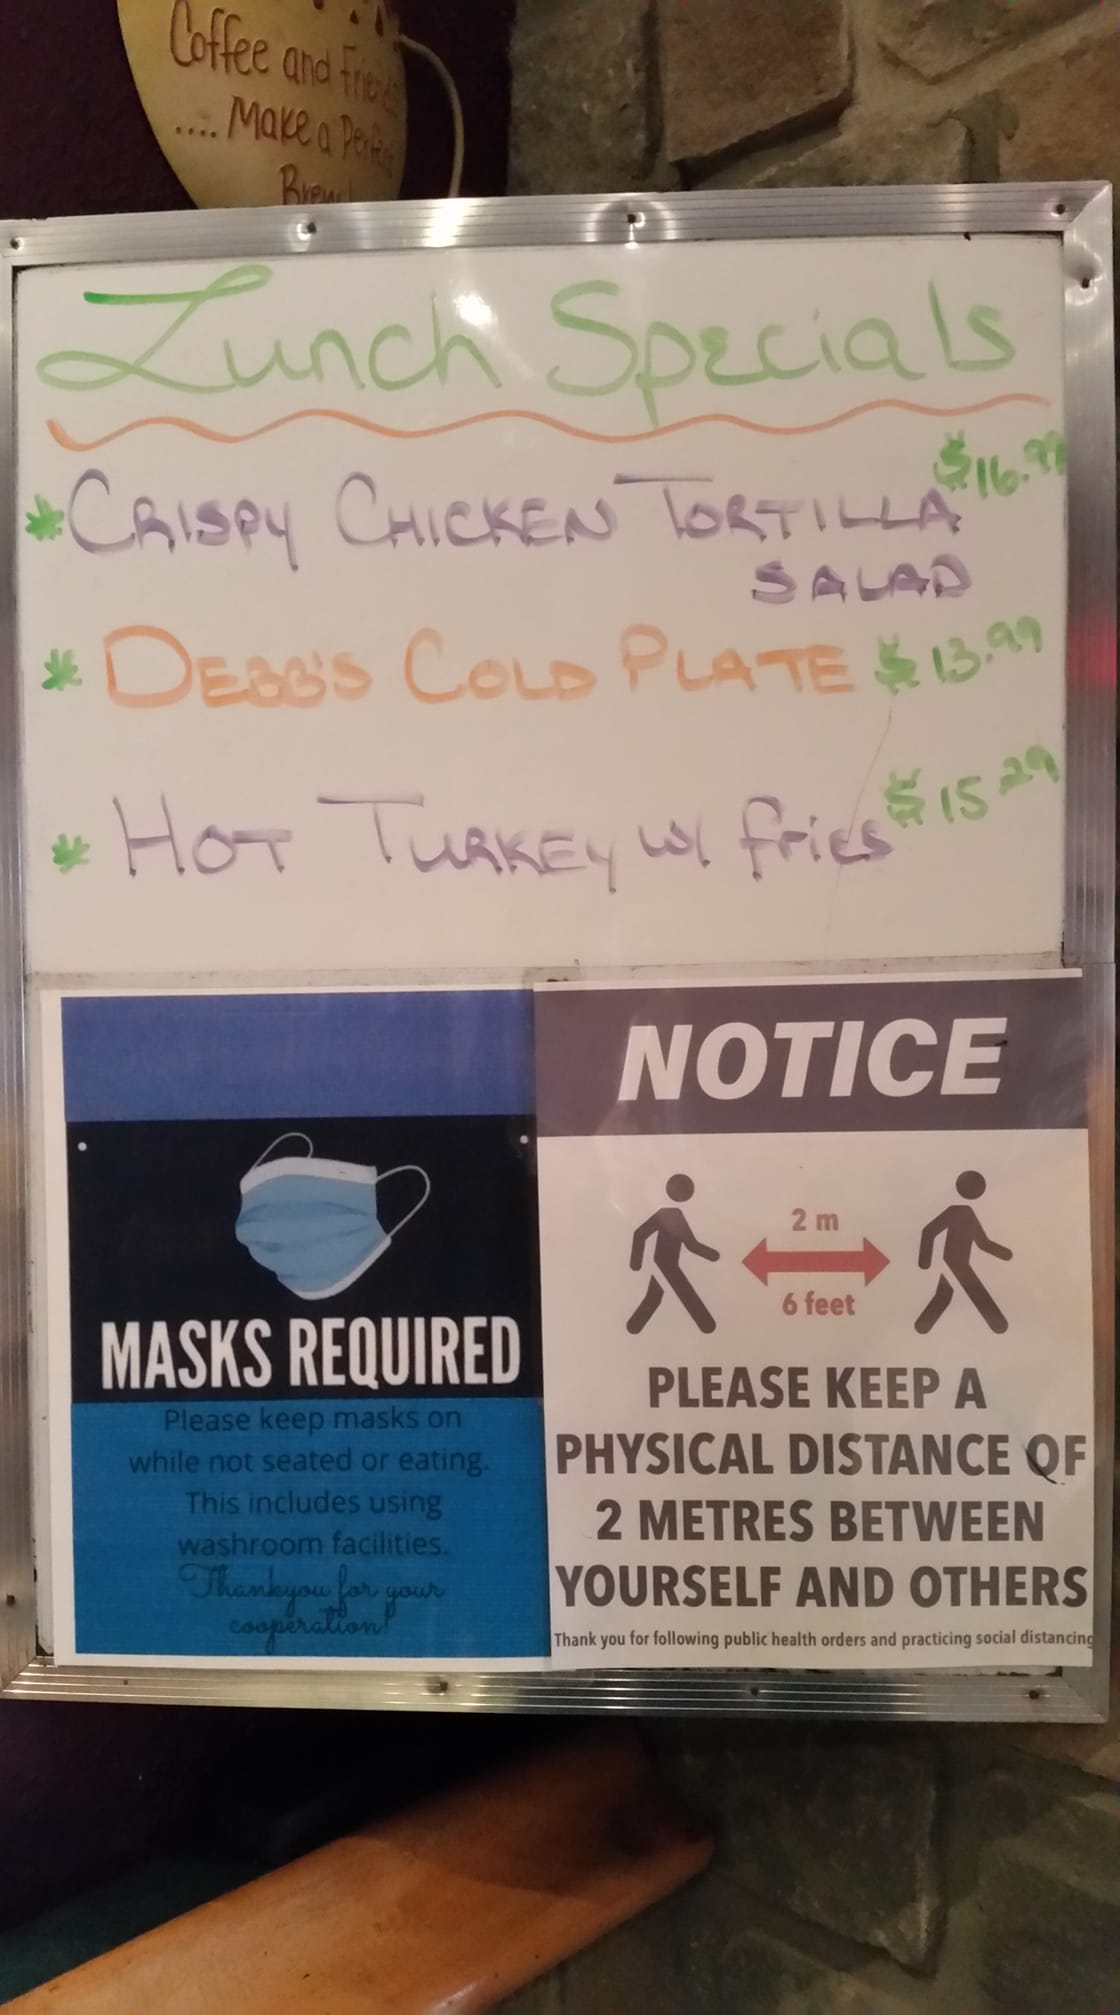 Coffee and Friends
.... Make a Perfect
Brew!
Lunch Specials
* CRISPY CHICKEN TORTILLA $16.99
SALAD
* DEBB'S COLD PLATE $13.99
* HOT TURKEY w/ fries $15.29
MASKS REQUIRED
Please keep masks on
while not seated or eating.
This includes using
washroom facilities.
Thankyou for your
cooperation!
NOTICE
2 m
6 feet
PLEASE KEEP A
PHYSICAL DISTANCE OF
2 METRES BETWEEN
YOURSELF AND OTHERS
Thank you for following public health orders and practicing social distancing